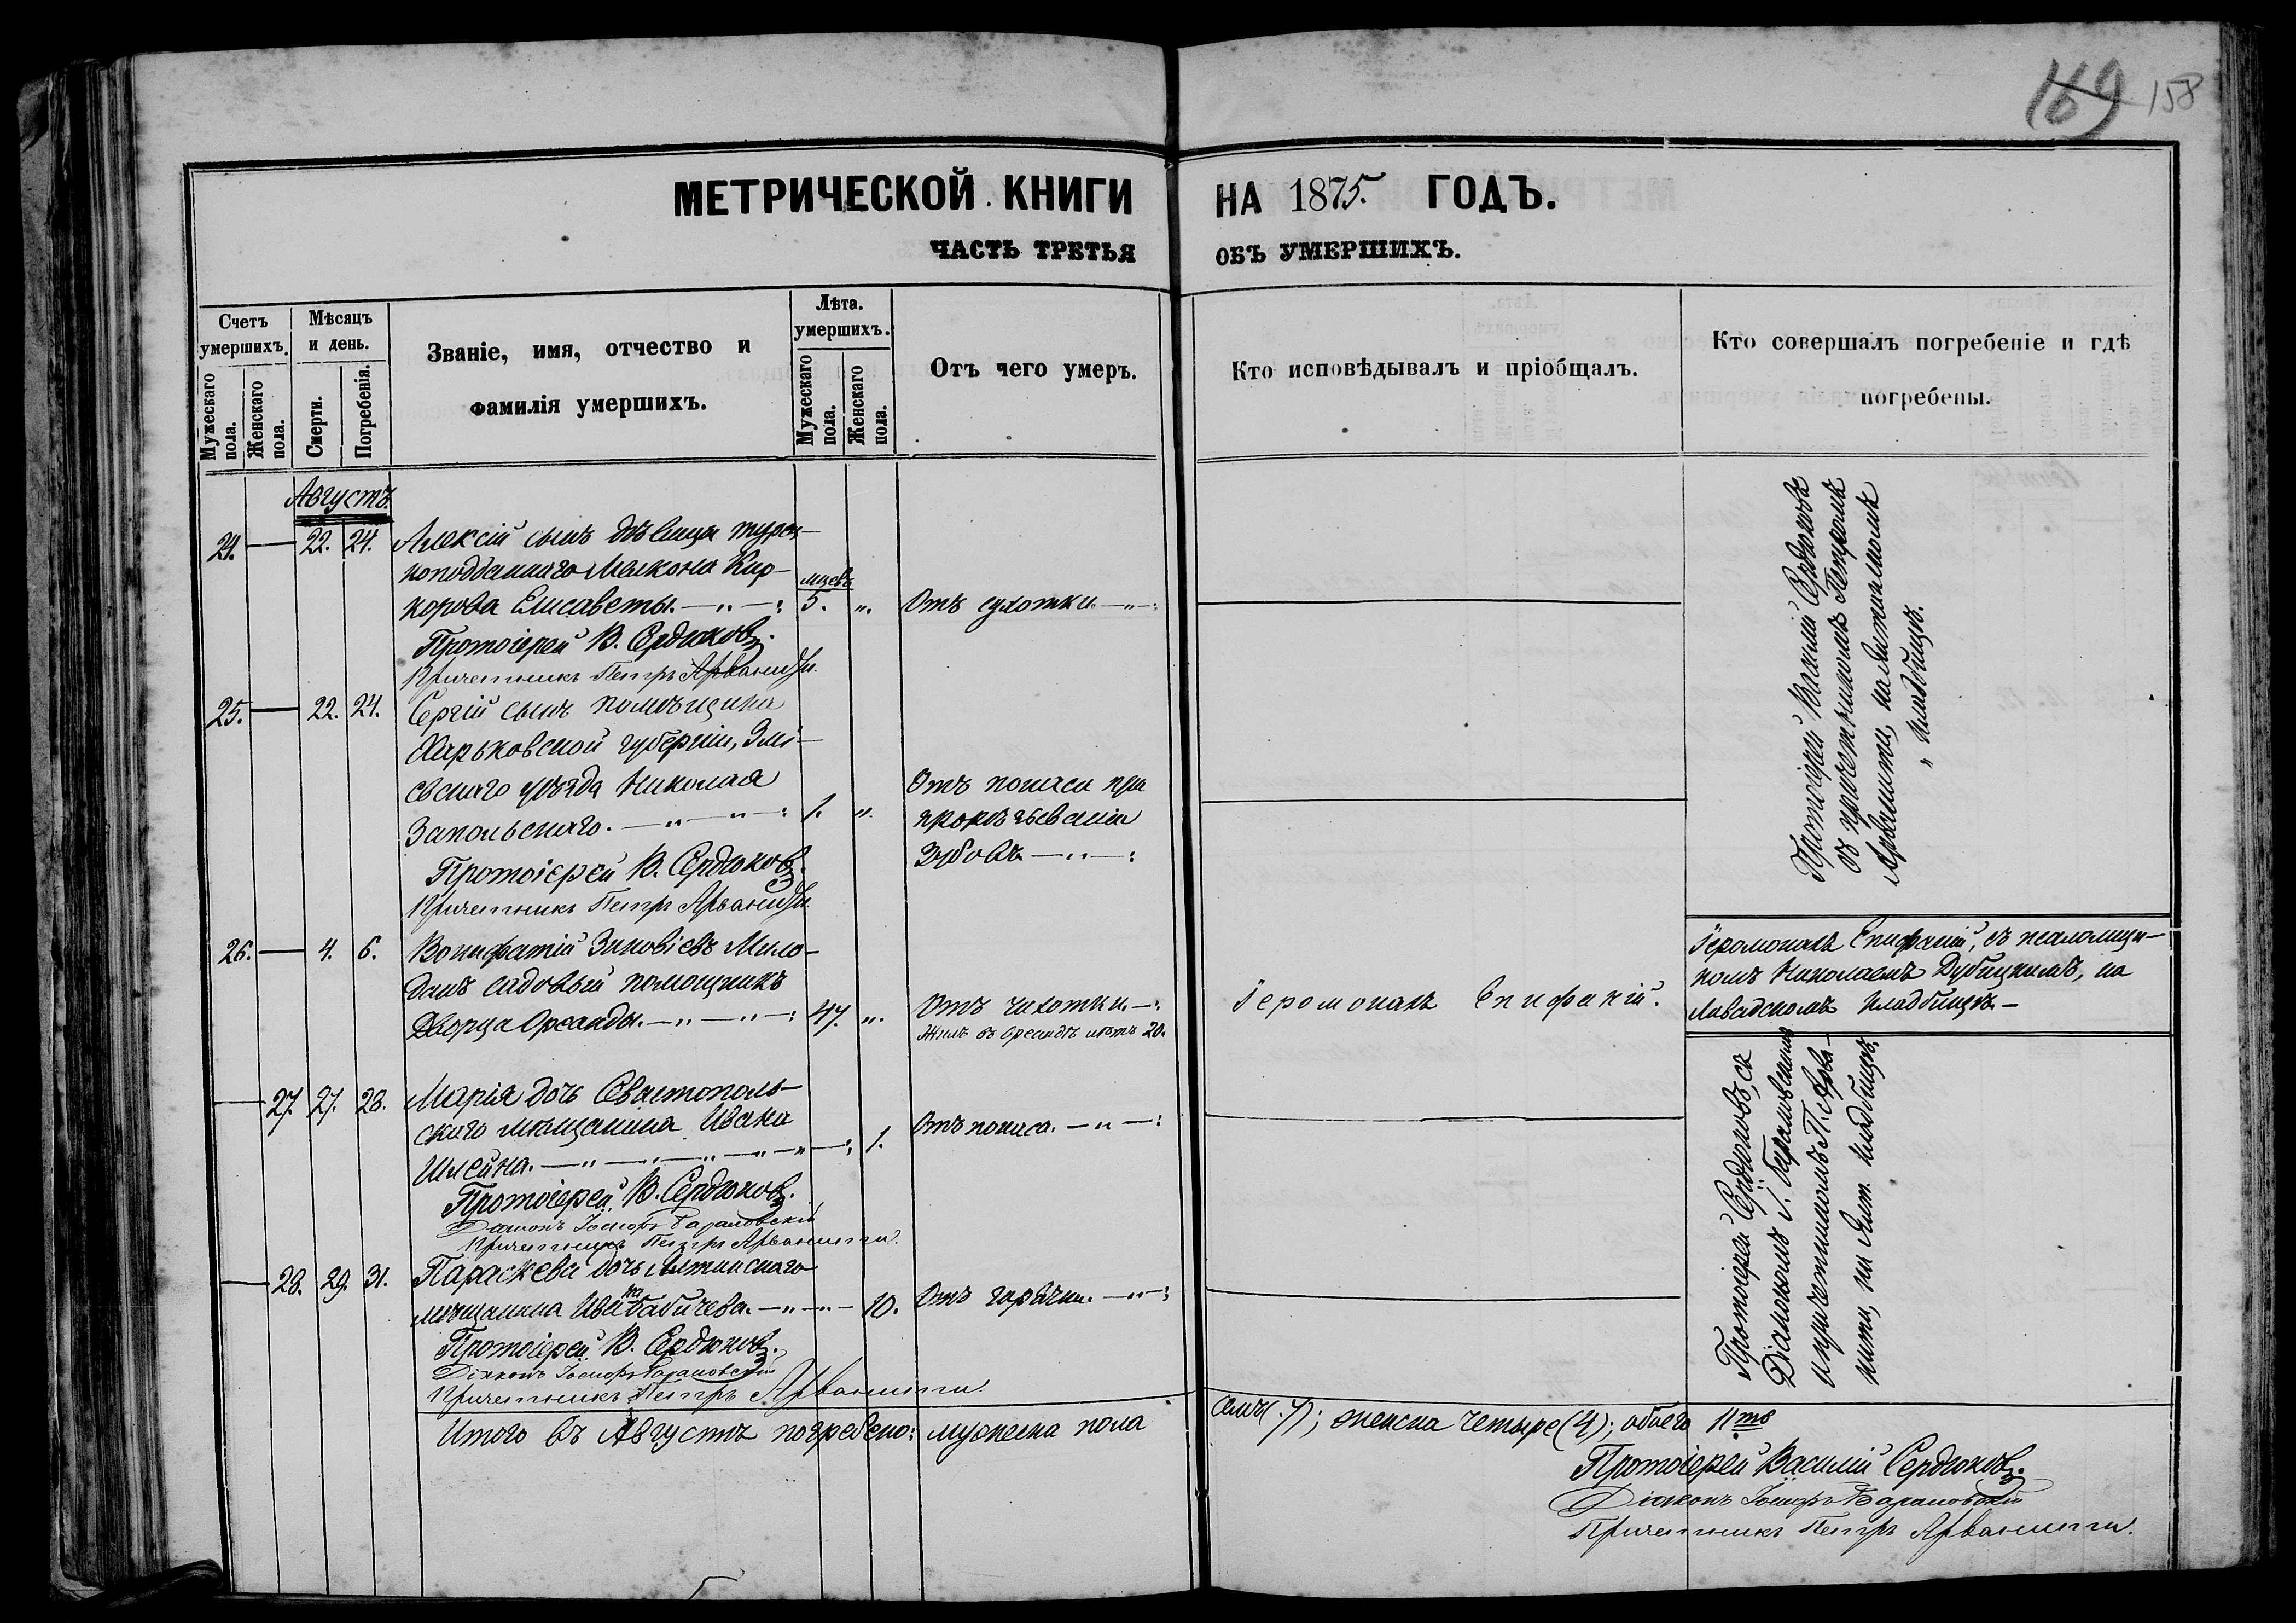 169 158
МЕТРИЧЕСКОЙ КНИГИ НА 1875. ГОДЪ.
ЧАСТЬ ТРЕТЬЯ ОБЪ УМЕРШИХЪ.
Счетъ умершихъ.
Мужескаго пола.
Женскаго пола.
Мѣсяцъ и день.
Смерти.
Погребенія.
Званіе, имя, отчество и
фамилія умершихъ.
Лѣта.
умершихъ.
Мужескаго пола.
Женскаго пола.
Отъ чего умеръ.
Кто исповѣдывалъ и пріобщалъ.
Кто совершалъ погребеніе и гдѣ
погребены.
Августъ.
24. 22. 24. Алексій сынъ дѣвицы турец-
коподданнаго Малкона Кир-
корова Елисаветы. мцевъ 5. „ Отъ сухотки.
Протоіерей В. Сердюковъ.
Причетникъ Петръ Арваниди.
25. 22. 24. Сергій сынъ помѣщика
Харьковской губерніи, Змі-
евскаго уѣзда Николая
Запольскаго. 1. „
Отъ поноса при
прорѣзываніи
зубовъ
Протоіерей В. Сердюковъ.
Причетникъ Петръ Арваниди.
Протоіерей Василій Сердюковъ
съ причетникомъ Петромъ
Арванити, на Ялтинскомъ
кладбищѣ.
26. 4. 6. Вонифатій Зиновіевъ Мило-
данъ садовый помощникъ
Дворца Ореанды. 47. „ Отъ чахотки.
Жилъ въ Ореандѣ лѣтъ 20.
Іеромонахъ Епифаній.
Іеромонахъ Епифаній, съ псаломщи-
комъ Николаемъ Дубицкимъ, на
Ливадскомъ кладбищѣ.
27. 27. 28. Марія дочь Севастополь-
скаго мѣщанина Ивана
Шлейна. 1. Отъ поноса.
Протоіерей В. Сердюковъ.
Діаконъ Іосифъ Барановскій
Причетникъ Петръ Арванити.
28. 29. 31. Параскева дочь Ялтинскаго
мѣщанина Ивана Бабичева. 10. Отъ горячки.
Протоіерей В. Сердюковъ.
Діаконъ Іосифъ Барановскій
Причетникъ Петръ Арванити.
Протоіерей Сердюковъ, съ
Діакономъ І. Барановскимъ
и причетникомъ П. Арва-
нити, на Ялт. кладбищѣ.
Итого въ Августѣ погребено: мужеска пола семь (7); женска четыре (4); обоего 11ть
Протоіерей Василій Сердюковъ.
Діаконъ Іосифъ Барановскій
Причетникъ Петръ Арванити.